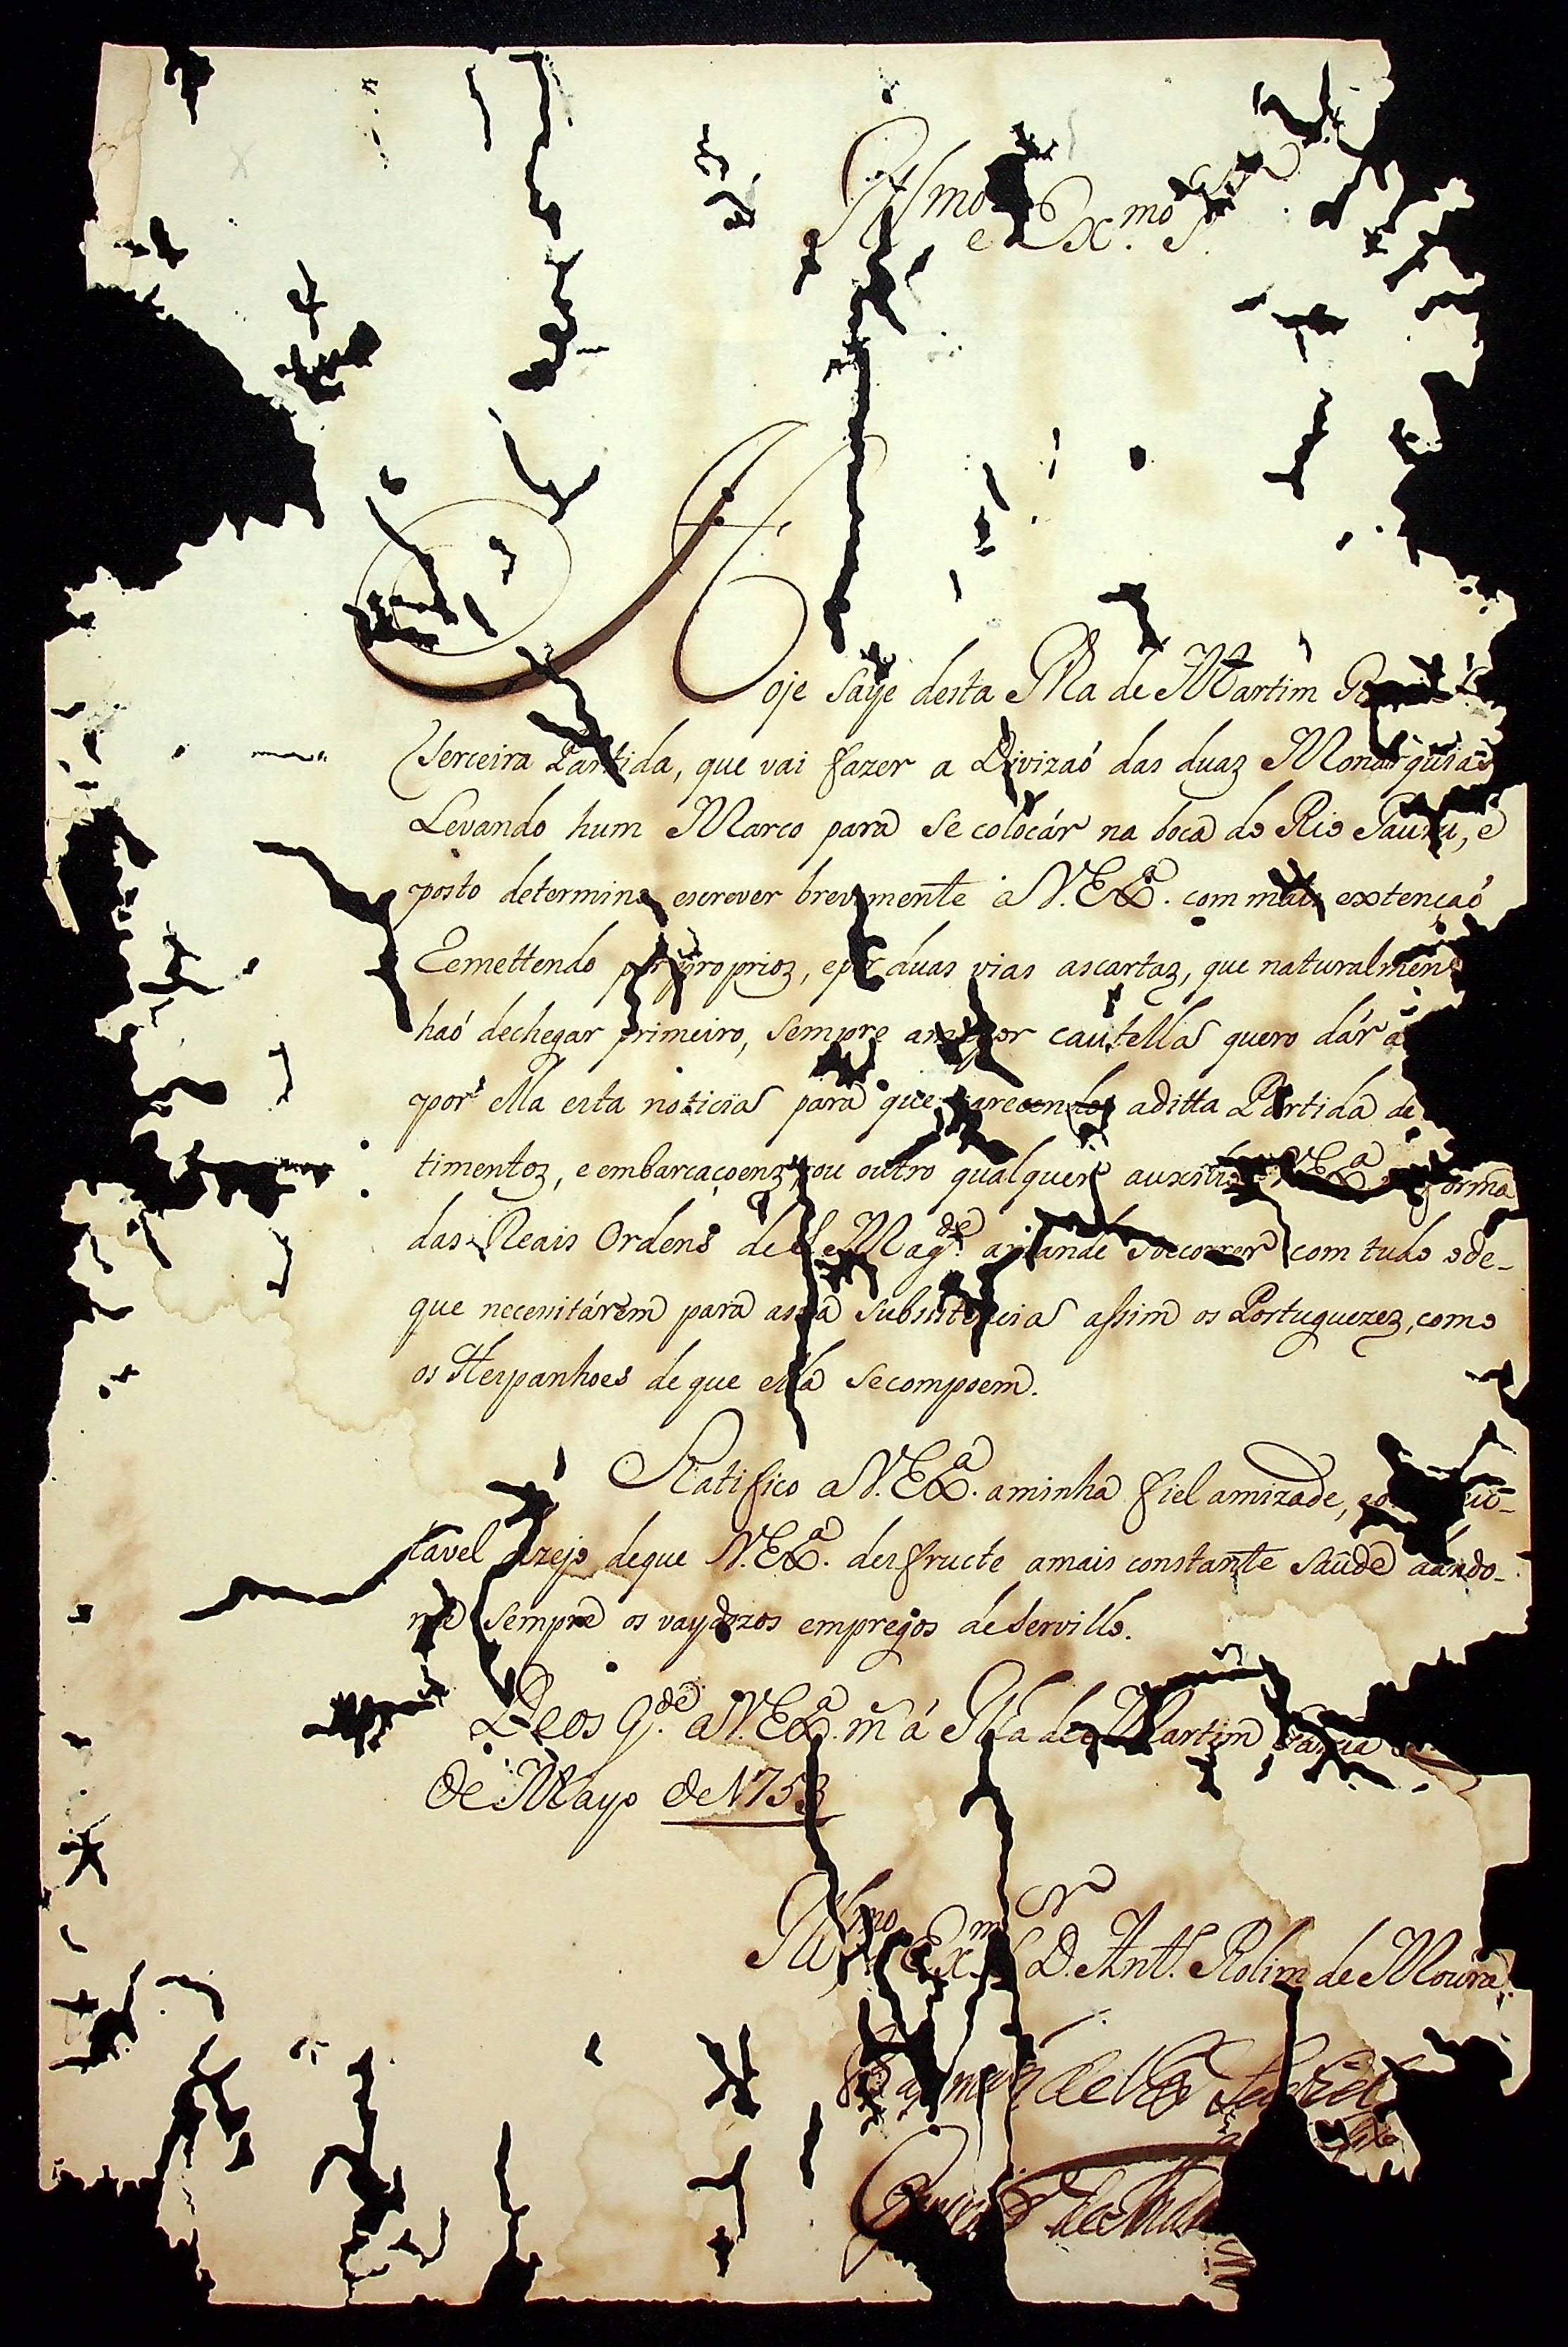 Illmo e Exmo Sr
Hoje saye desta Ilha de Martim
terceira Partida, que vai fazer a Divizaó das duaz Monarquias
Levando hum Marco para se colocár na boca do Rio Jaurú, e
posto determino escrever brevemente a V. Exa. com mais extençaó
Remettendo por proprioz, e por duas vias as cartaz, que naturalmen
haó de chegar primeiro, sempre a mayor cautella quero dár a
por Ella esta noticia para que carecendo a ditta Partida de
timentoz, e embarcaçoenz, ou outro qualquer auxilio V. Exa forma
das Reais Ordens de S. Magde. a mande soccorrer com tudo o de-
que necessitárem para a sua subsistencia assim os Portuguezez, como
os Hespanhoes de que ella se compoem.
Ratifico a V. Exa. a minha fiel amizade,
tavel dezejo de que V. Exa. desfructe a mais constante saude dando-
me sempre os vaydozos empregos de servillo.
Deos Gde. a V. Exa. m á Ilha de Martim Garcia
de Mayo de 1753
Illmo Exmo Sr D. Anto. Rolim de Moura